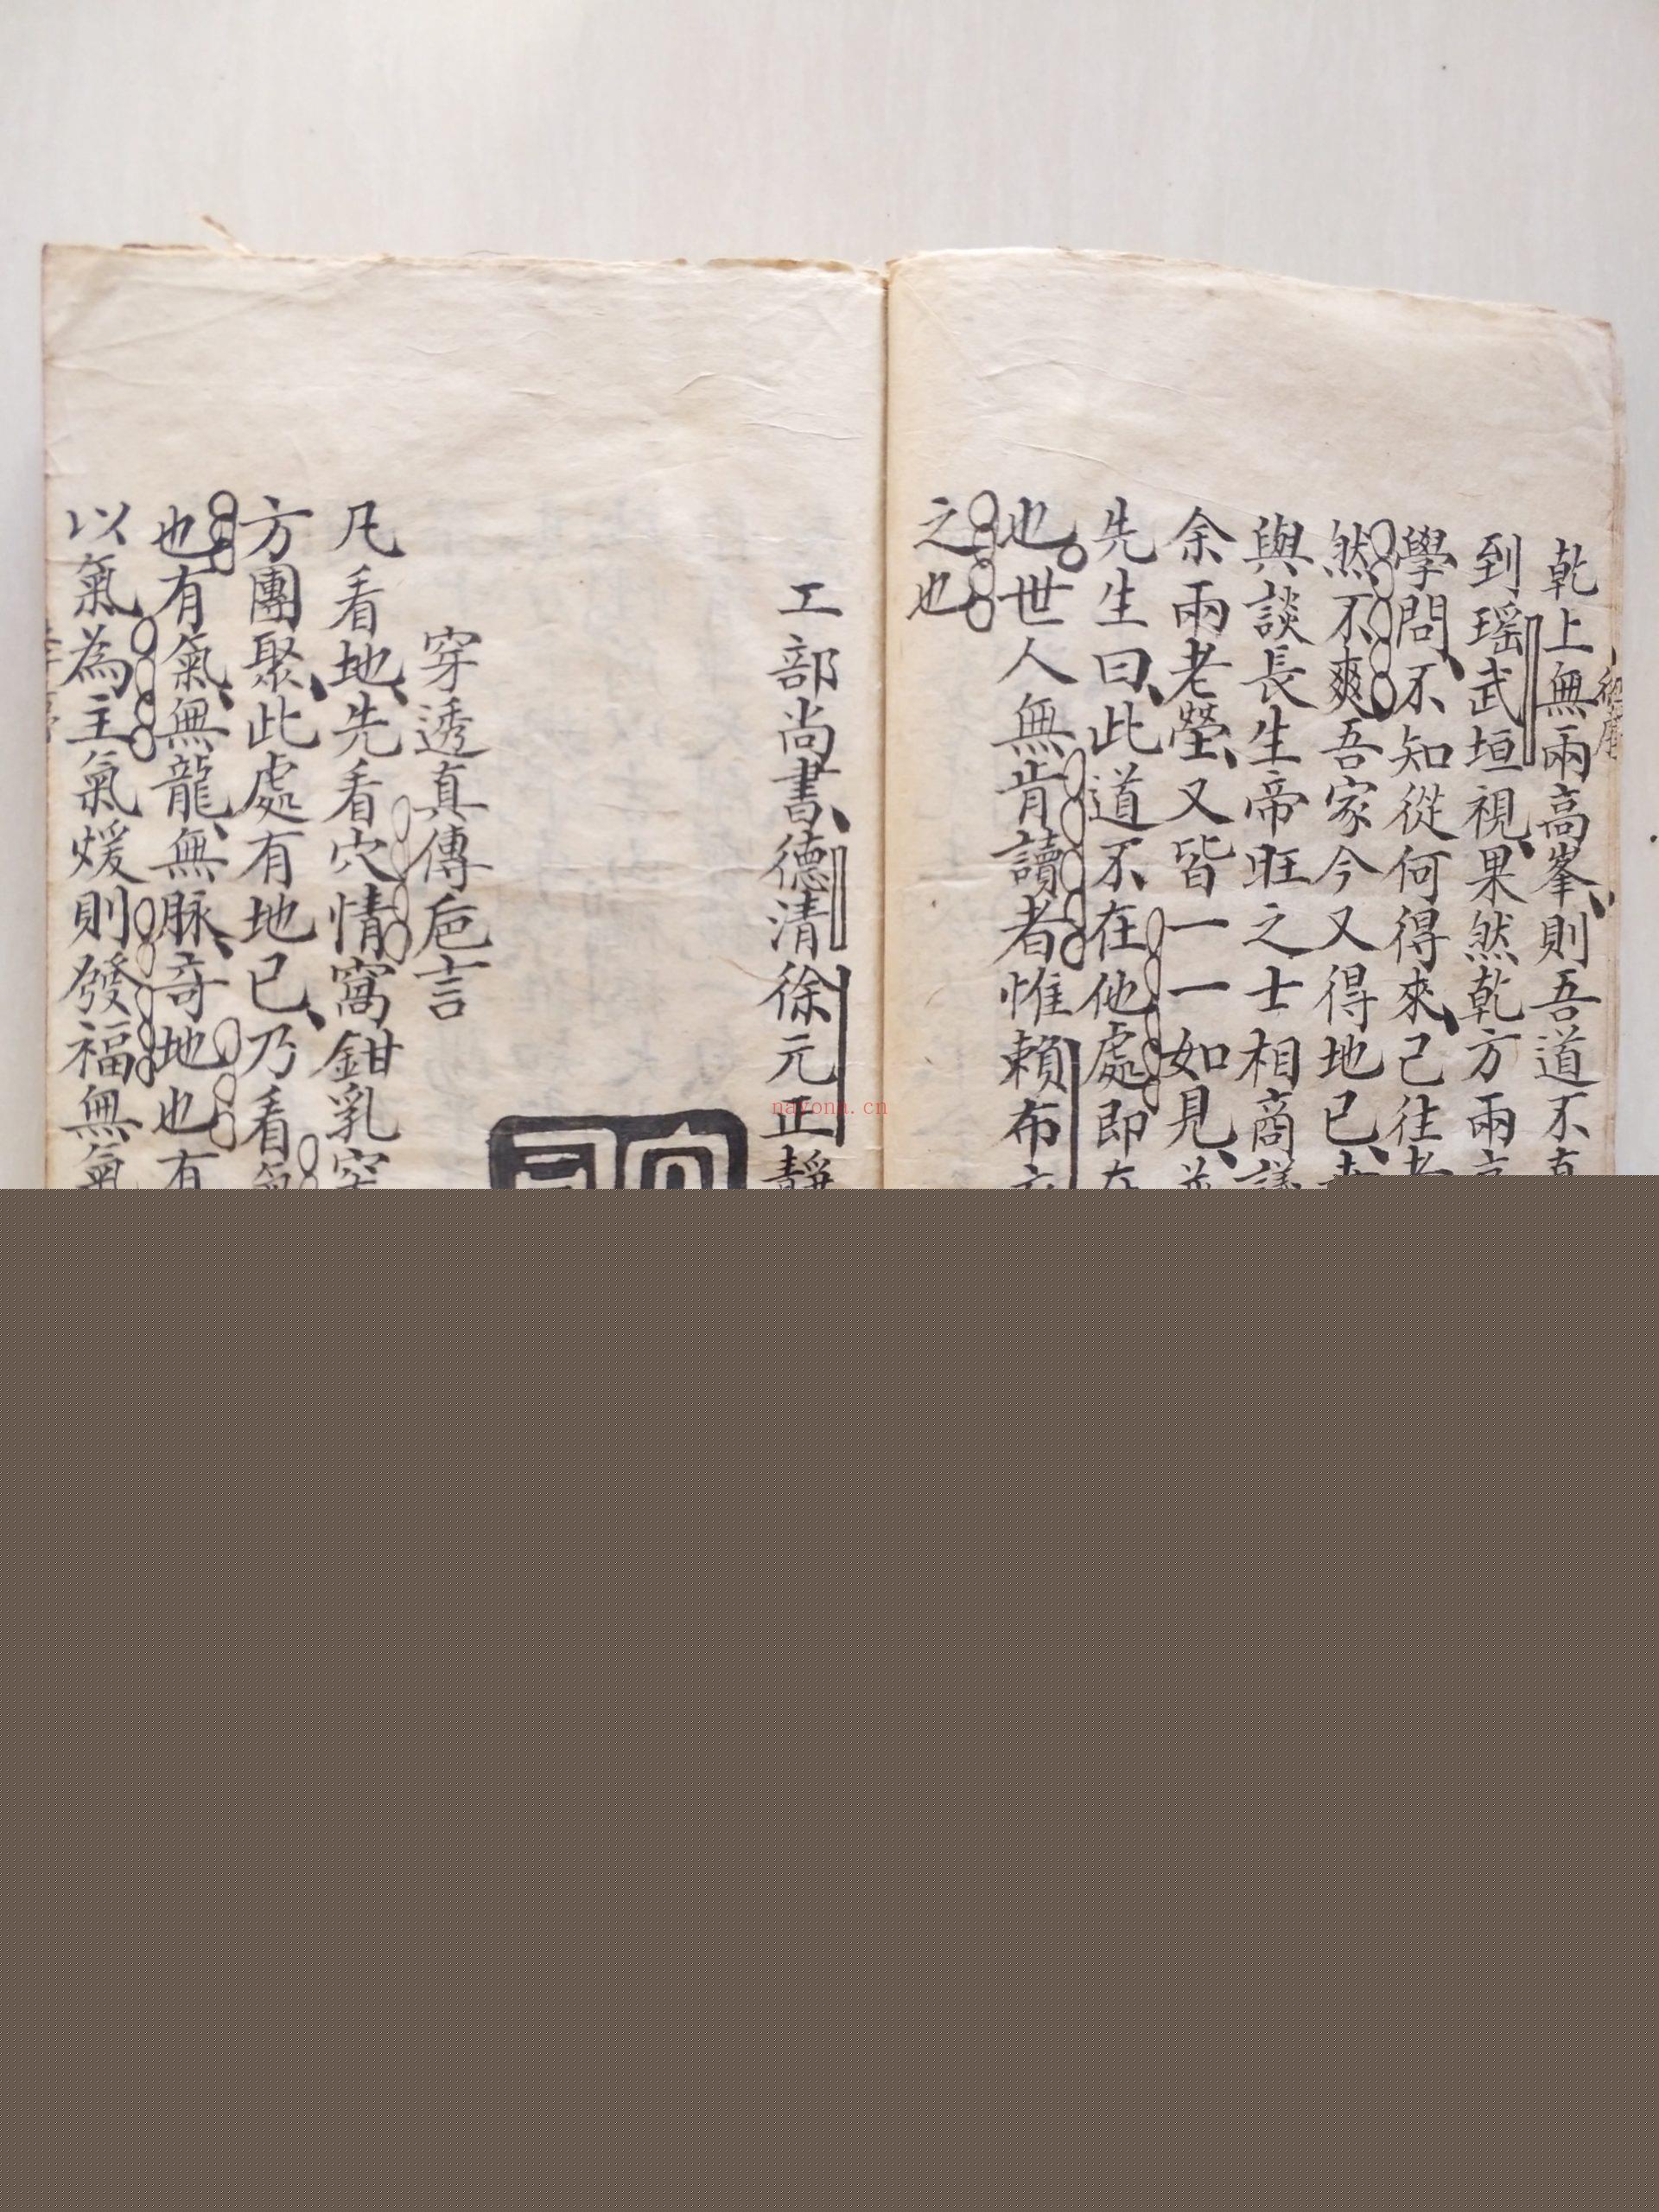 乾上無兩高峯則吾道不真
到瑶武垣視果然乾方兩高
學問不知從何得來已往者
然不爽吾家今又得地已
與談長生帝旺之士相商議
余兩老塋又皆一一如見
先生曰此道不在他處即在
也世人無肯讀者惟賴布衣
之也
工部尚書德清徐元正靜
穿透真傳巵言
凡看地先看穴情窩鉗乳突
方團聚此處有地已乃看氣
也有氣無龍無脉奇地也有
以氣為主氣煖則發福無氣
nayona.cn